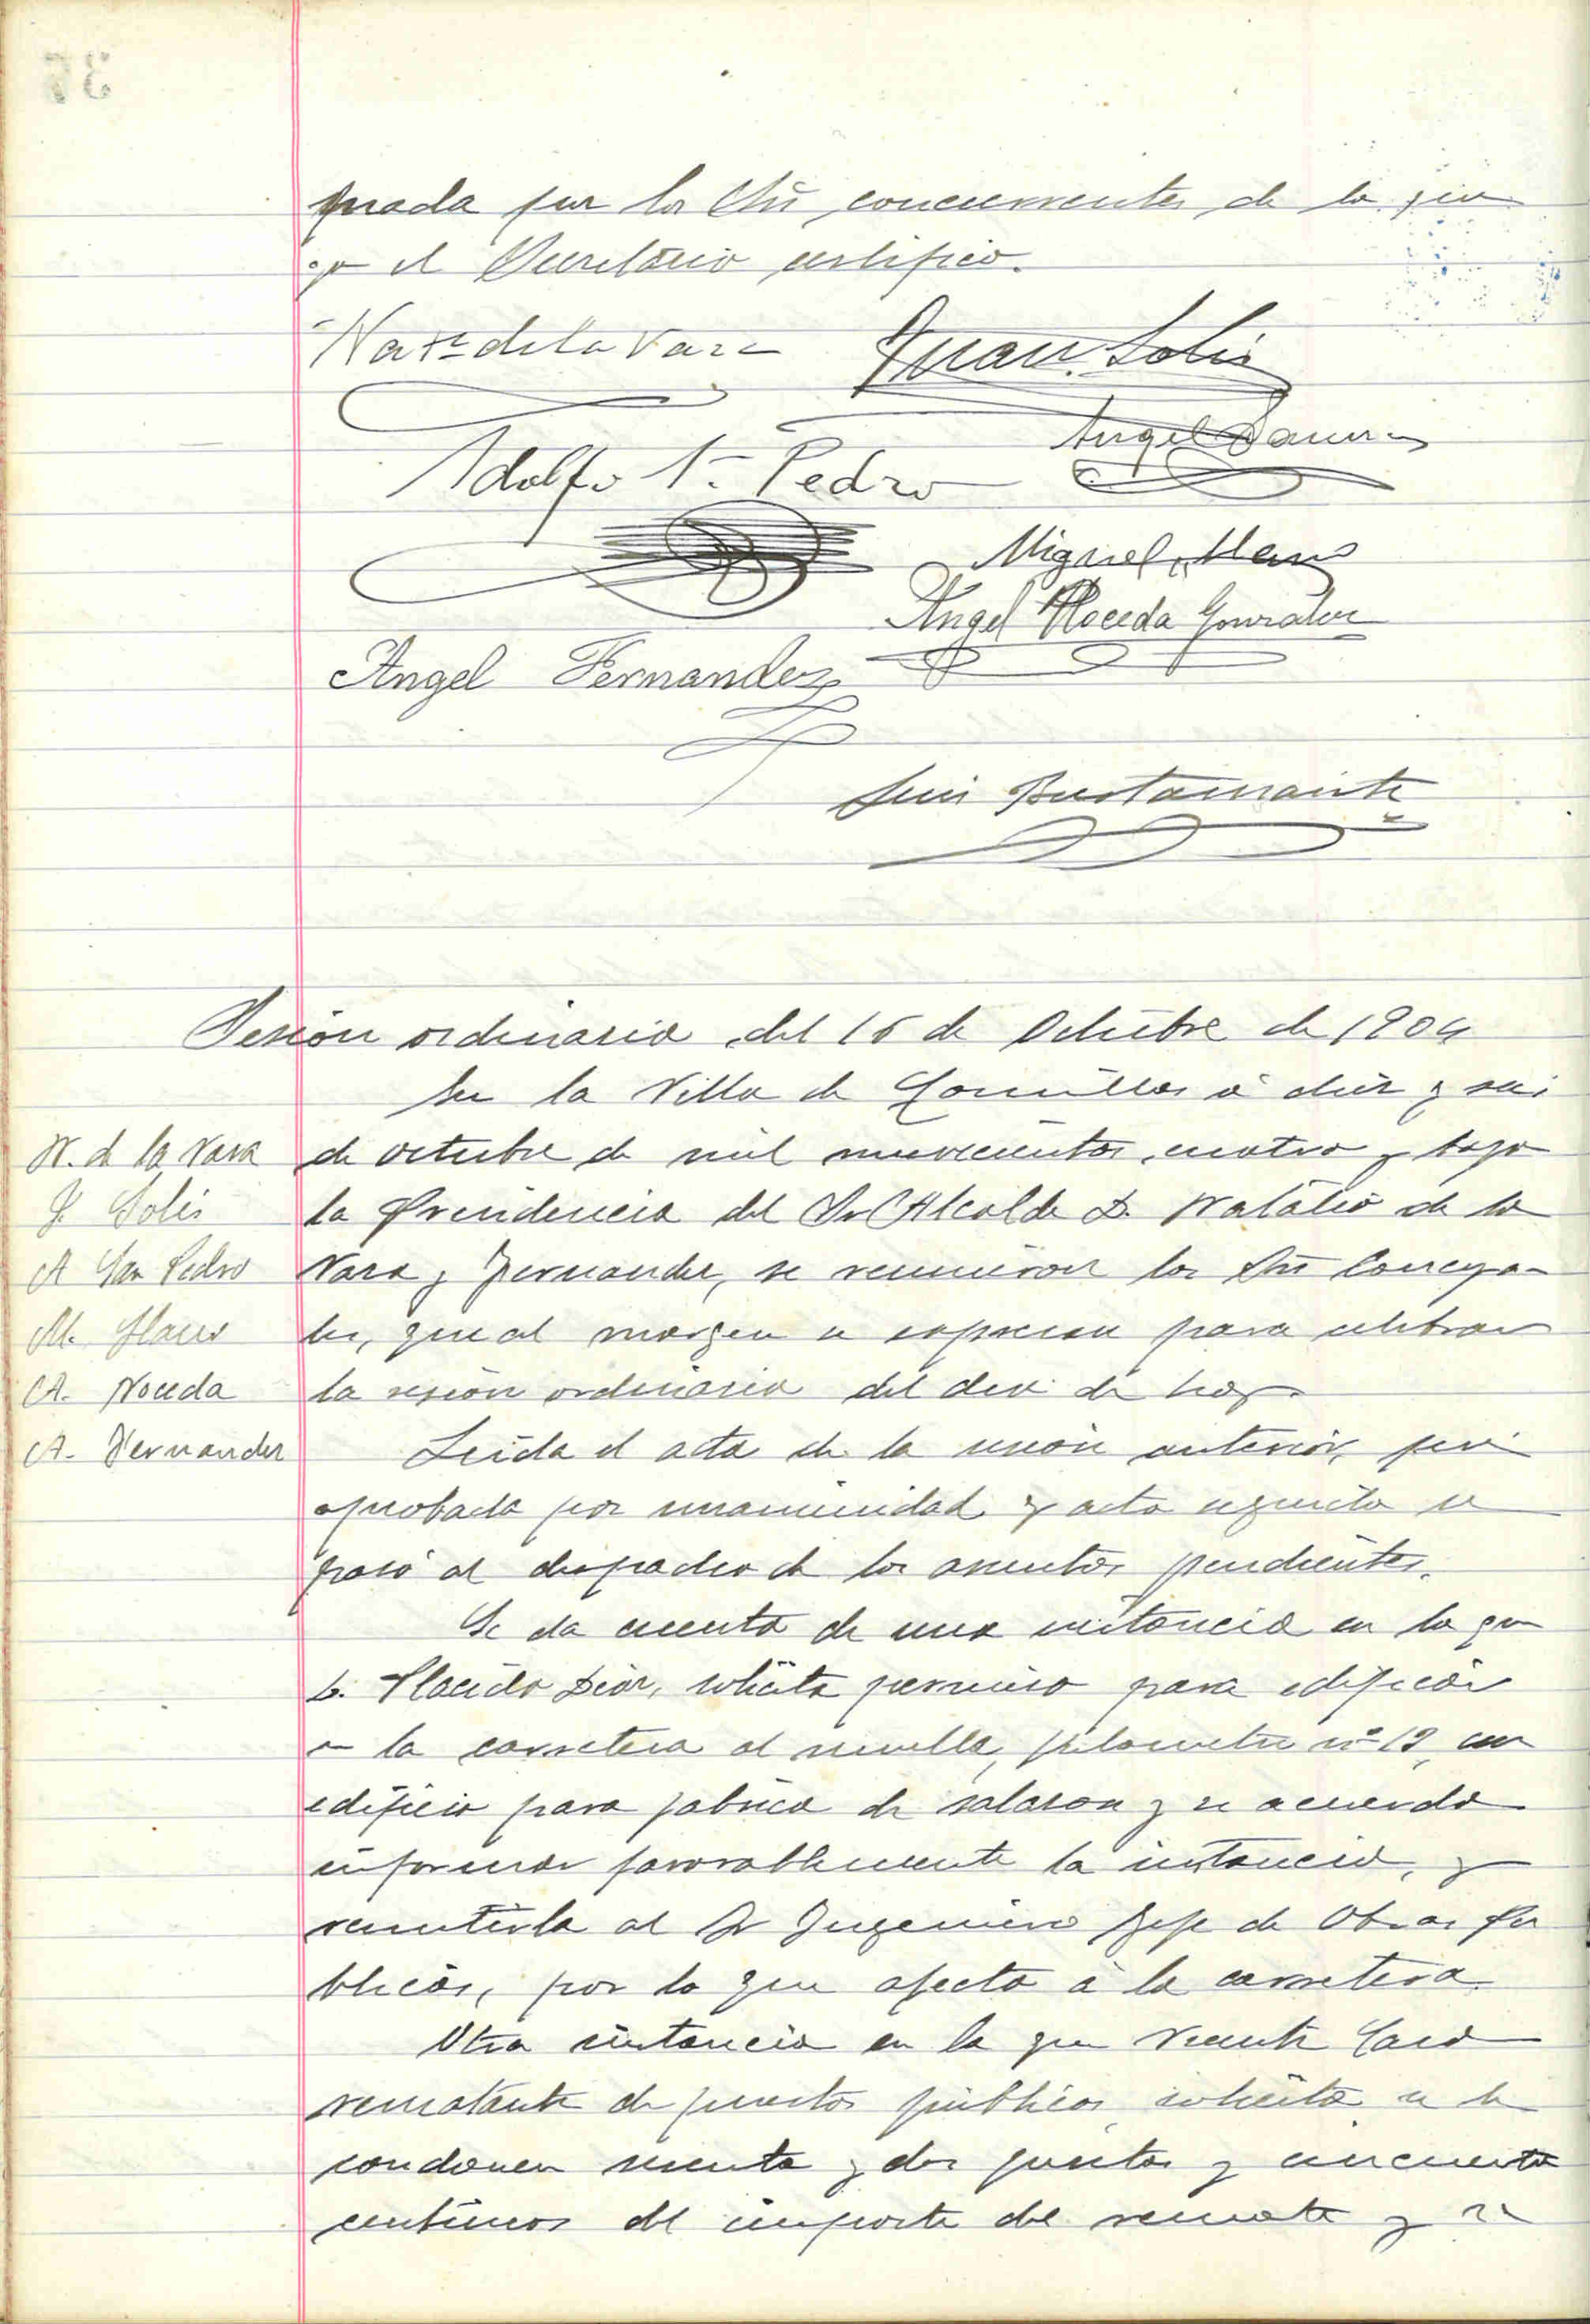 por los Sres concurrentes de lo que
yo el Secretario certifico.
Nat. de la Vara Juan Solis
Angel
Adolfo Sn Pedro
Miguel Llano
Angel Noceda Gonzalez
Angel Fernandez
Luis Bustamante
Sesion ordinaria del 16 de Octubre de 1904
En la Villa de Comillas á diez y seis
N. de la Vara
de octubre de mil novecientos cuatro y bajo
J. Solis
la Presidencia del Sr Alcalde D. Natalio de la
A San Pedro
Vara y Fernandez, se reunieron los Sres Conceja-
M. Llano
les, que al margen se expresan para celebrar
A. Noceda
la sesión ordinaria del dia de hoy.
A. Fernandez
Leida el acta de la sesión anterior, fué
aprobada por unanimidad y acto seguido se
pasó al despacho de los asuntos pendientes.
Se da cuenta de una instancia en la que
D. Placido Diaz, solicita permiso para edificar
en la carretera al muelle, kilometro nº 12, un
edificio para fabrica de salazon y se acuerda
informar favorablemente la instancia, y
remitirla al Sr Ingeniero Jefe de Obras Pu
blicas, por lo que afecta á la carretera.
Otra instancia en la que Vicente
rematante de puestos públicos solicita se le
condonen y dos pesetas y cincuenta
centimos del importe del remate y se